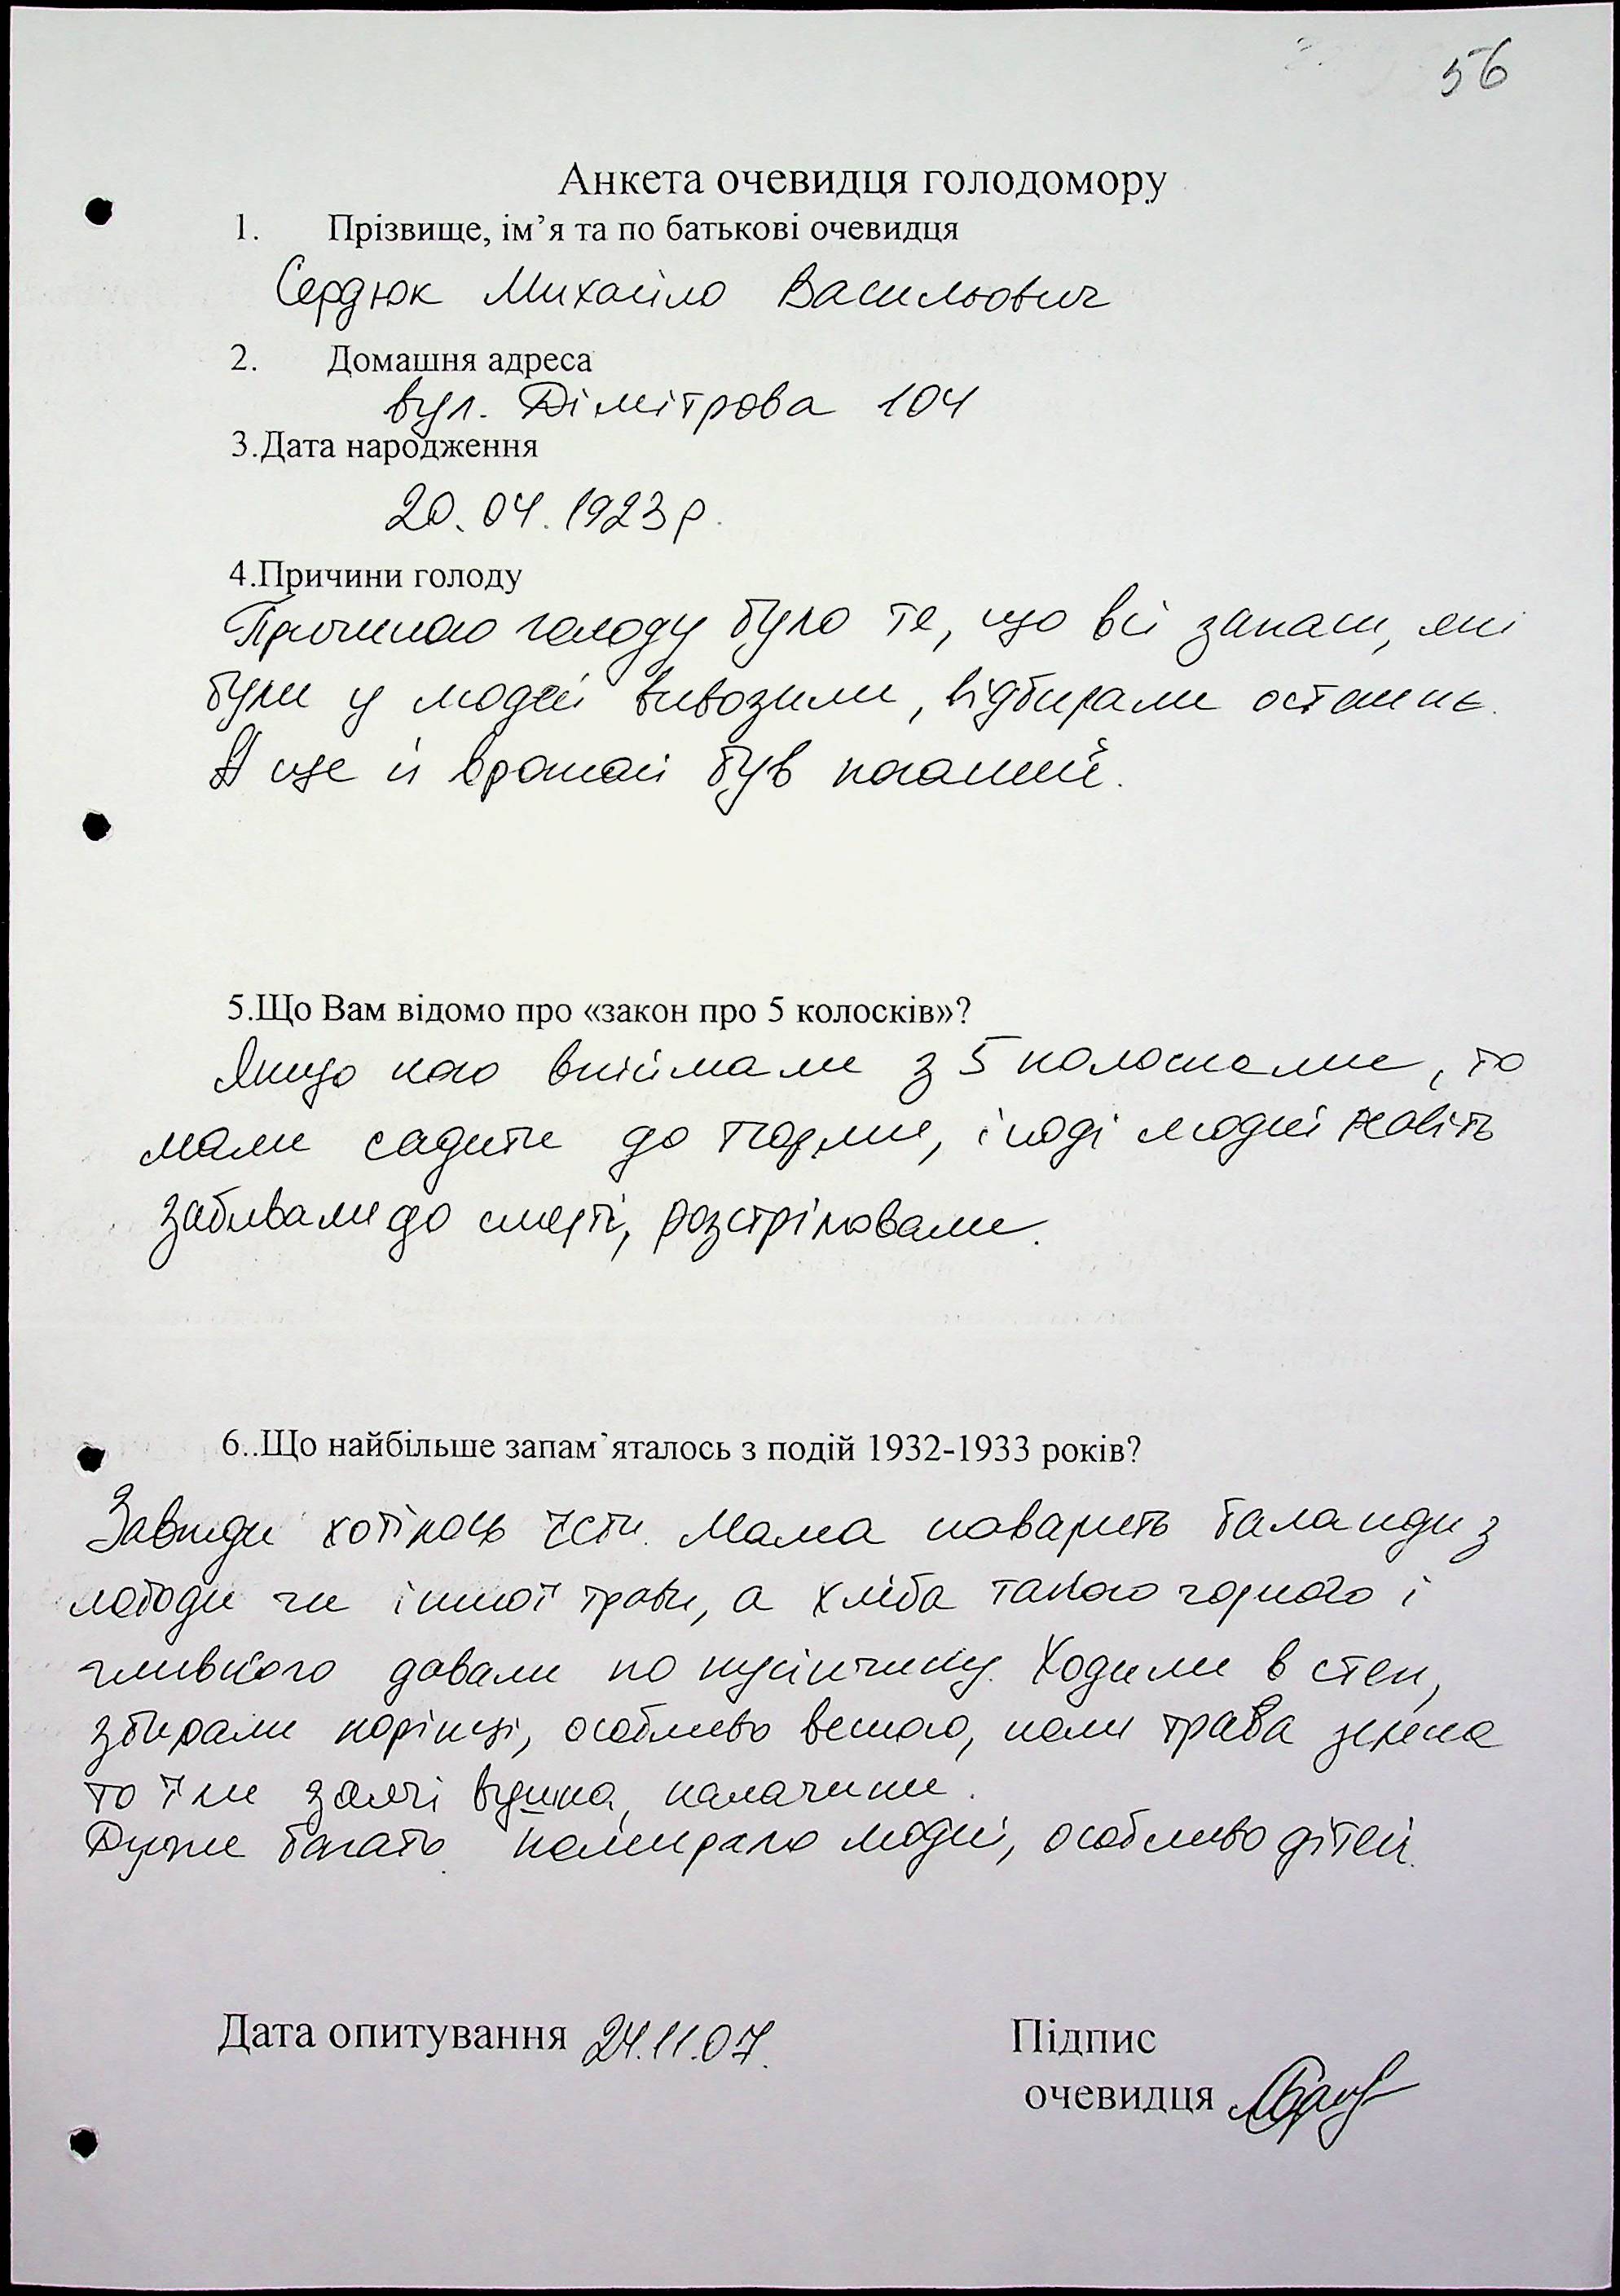 56
Анкета очевидця голодомору
1. Прізвище, ім’я та по батькові очевидця
Сердюк Михайло Васильович
2. Домашня адреса
вул. Дімітрова 104
3.Дата народження
20.04.1923р.
4.Причини голоду
Причиною голоду було те, що всі запаси, які
були у людей вивозили, відбирали останнє.
А ще й врожай був поганий.
5.Що Вам відомо про «закон про 5 колосків»?
Якщо кого впіймали з 5 колосками, то
мали садити до тюрми, іноді людей навіть
забивали до смерті, розстрілювали.
6..Що найбільше запам`яталось з подій 1932-1933 років?
Завжди хотілось їсти. Мама наварить баланди з
лободи чи іншої трави, а хліба такого чорного і
гливкого давали по кусінчику. Ходили в степ,
збирали корінці, особливо весною, коли трава зелена
то їли заячі вушка, калачики.
Дуже багато помирало людей, особливо дітей.
Дата опитування 24.11.07.
Підпис
очевидця